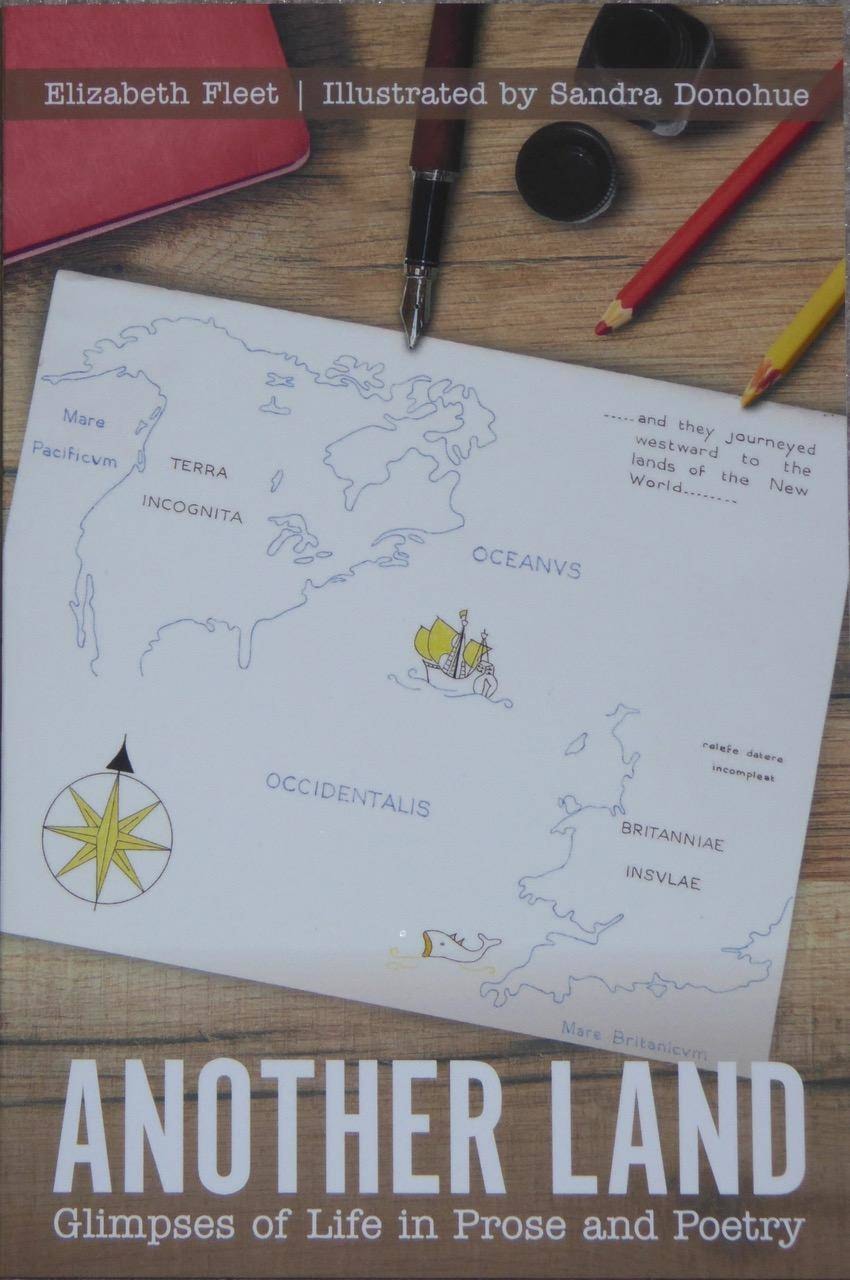 Elizabeth Fleet | Illustrated by Sandra Donohue
.....and they journeyed
westward to the
lands of the New
World........
Mare
Pacificvm
TERRA
INCOGNITA
OCEANVS
OCCIDENTALIS
relefe datere
incompleat
BRITANNIAE
INSVLAE
Mare Britanicvm
ANOTHER LAND
Glimpses of Life in Prose and Poetry